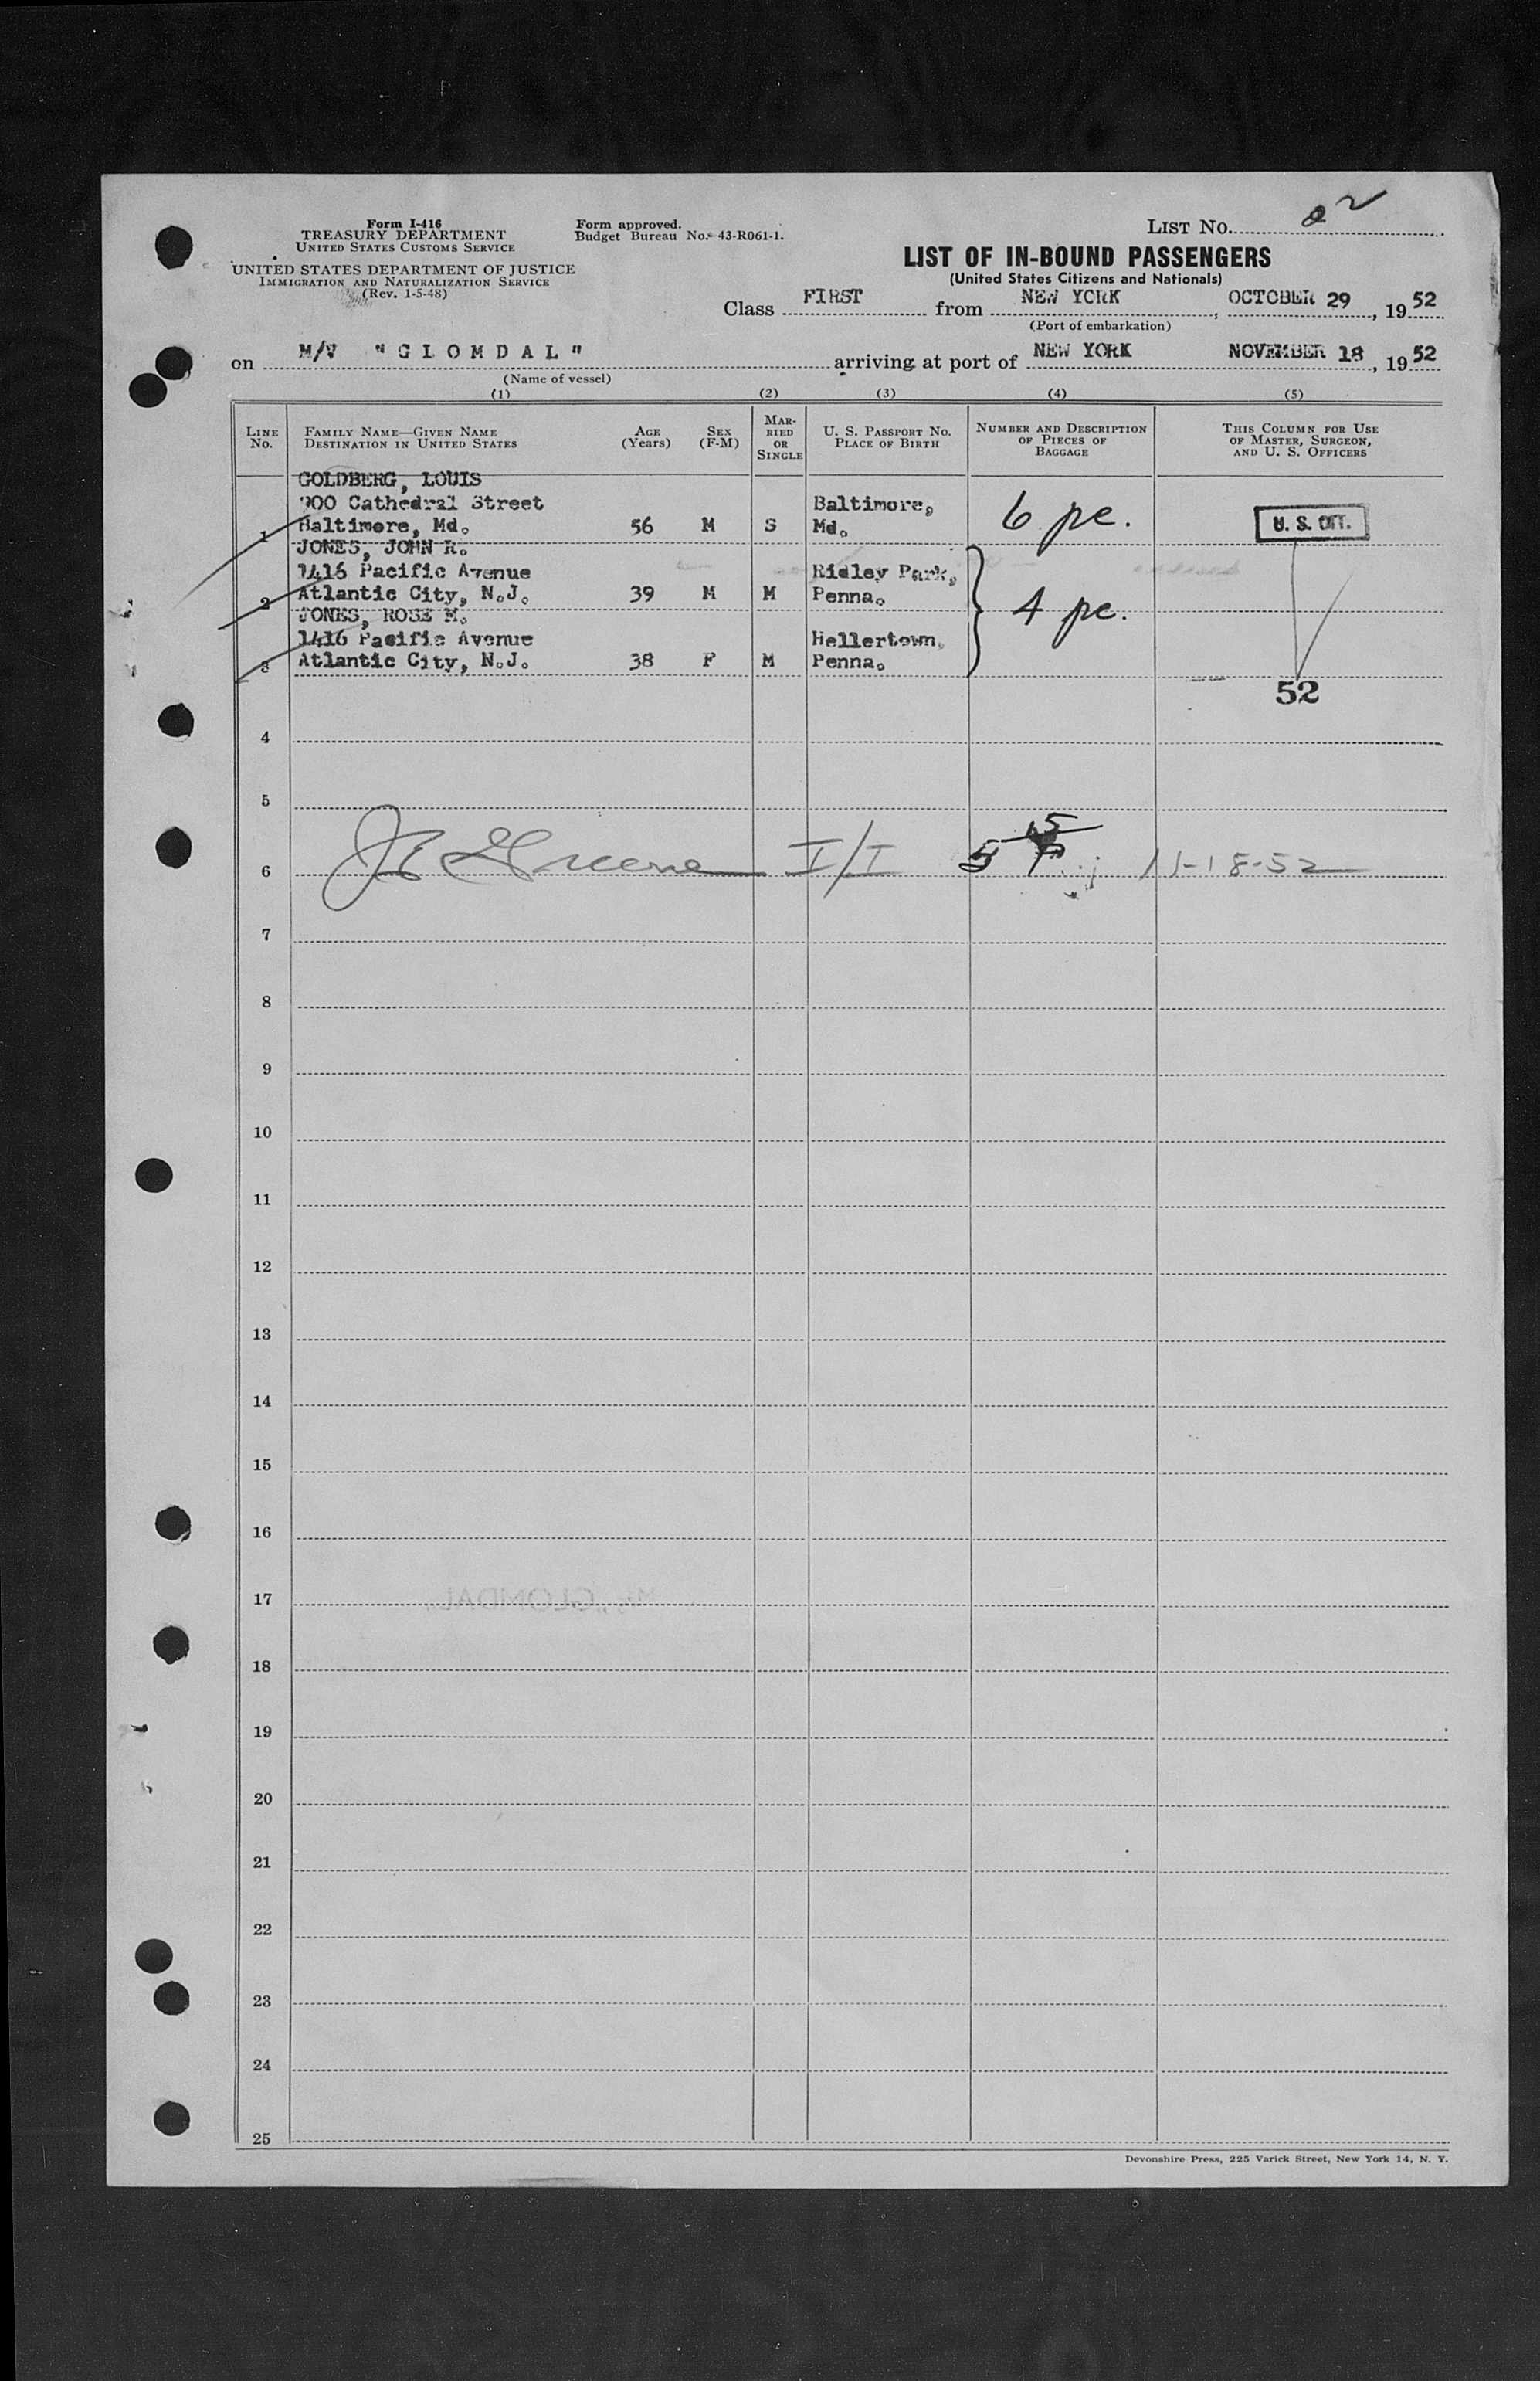 Form I-416
TREASURY DEPARTMENT
UNITED STATES CUSTOMS SERVICE
UNITED STATES DEPARTMENT OF JUSTICE
IMMIGRATION AND NATURALIZATION SERVICE
(Rev. 1-5-48)
Form approved.
Budget Bureau No. 43-R061-1.
LIST No.
LIST OF IN-BOUND PASSENGERS
(United States Citizens and Nationals)
Class FIRST from NEW YORK, OCTOBER 29, 1952
(Port of embarkation)
on M/V "GLOMDAL" arriving at port of NEW YORK NOVEMBER 18, 1952
(Name of vessel)
(1) (2) (3) (4) (5)
LINE No.
FAMILY NAME—GIVEN NAME
DESTINATION IN UNITED STATES
AGE (Years)
SEX (F-M)
MARRIED OR SINGLE
U. S. PASSPORT NO.
PLACE OF BIRTH
NUMBER AND DESCRIPTION OF PIECES OF BAGGAGE
THIS COLUMN FOR USE OF MASTER, SURGEON, AND U. S. OFFICERS
GOLDBERG, LOUIS
900 Cathedral Street Baltimore,
1 Baltimore, Md. 56 M S Md. 6 pc. U. S. CIT.
JONES, JOHN R.
1416 Pacific Avenue Ridley Park,
2 Atlantic City, N.J. 39 M M Penna. 4 pc.
JONES, ROSE M.
1416 Pacific Avenue Hellertown,
3 Atlantic City, N.J. 38 F M Penna.
52
4
5
6 Greene I/I 11-18-52
7
8
9
10
11
12
13
14
15
16
17 "GLOMDAL"
18
19
20
21
22
23
24
25
Devonshire Press, 225 Varick Street, New York 14, N. Y.